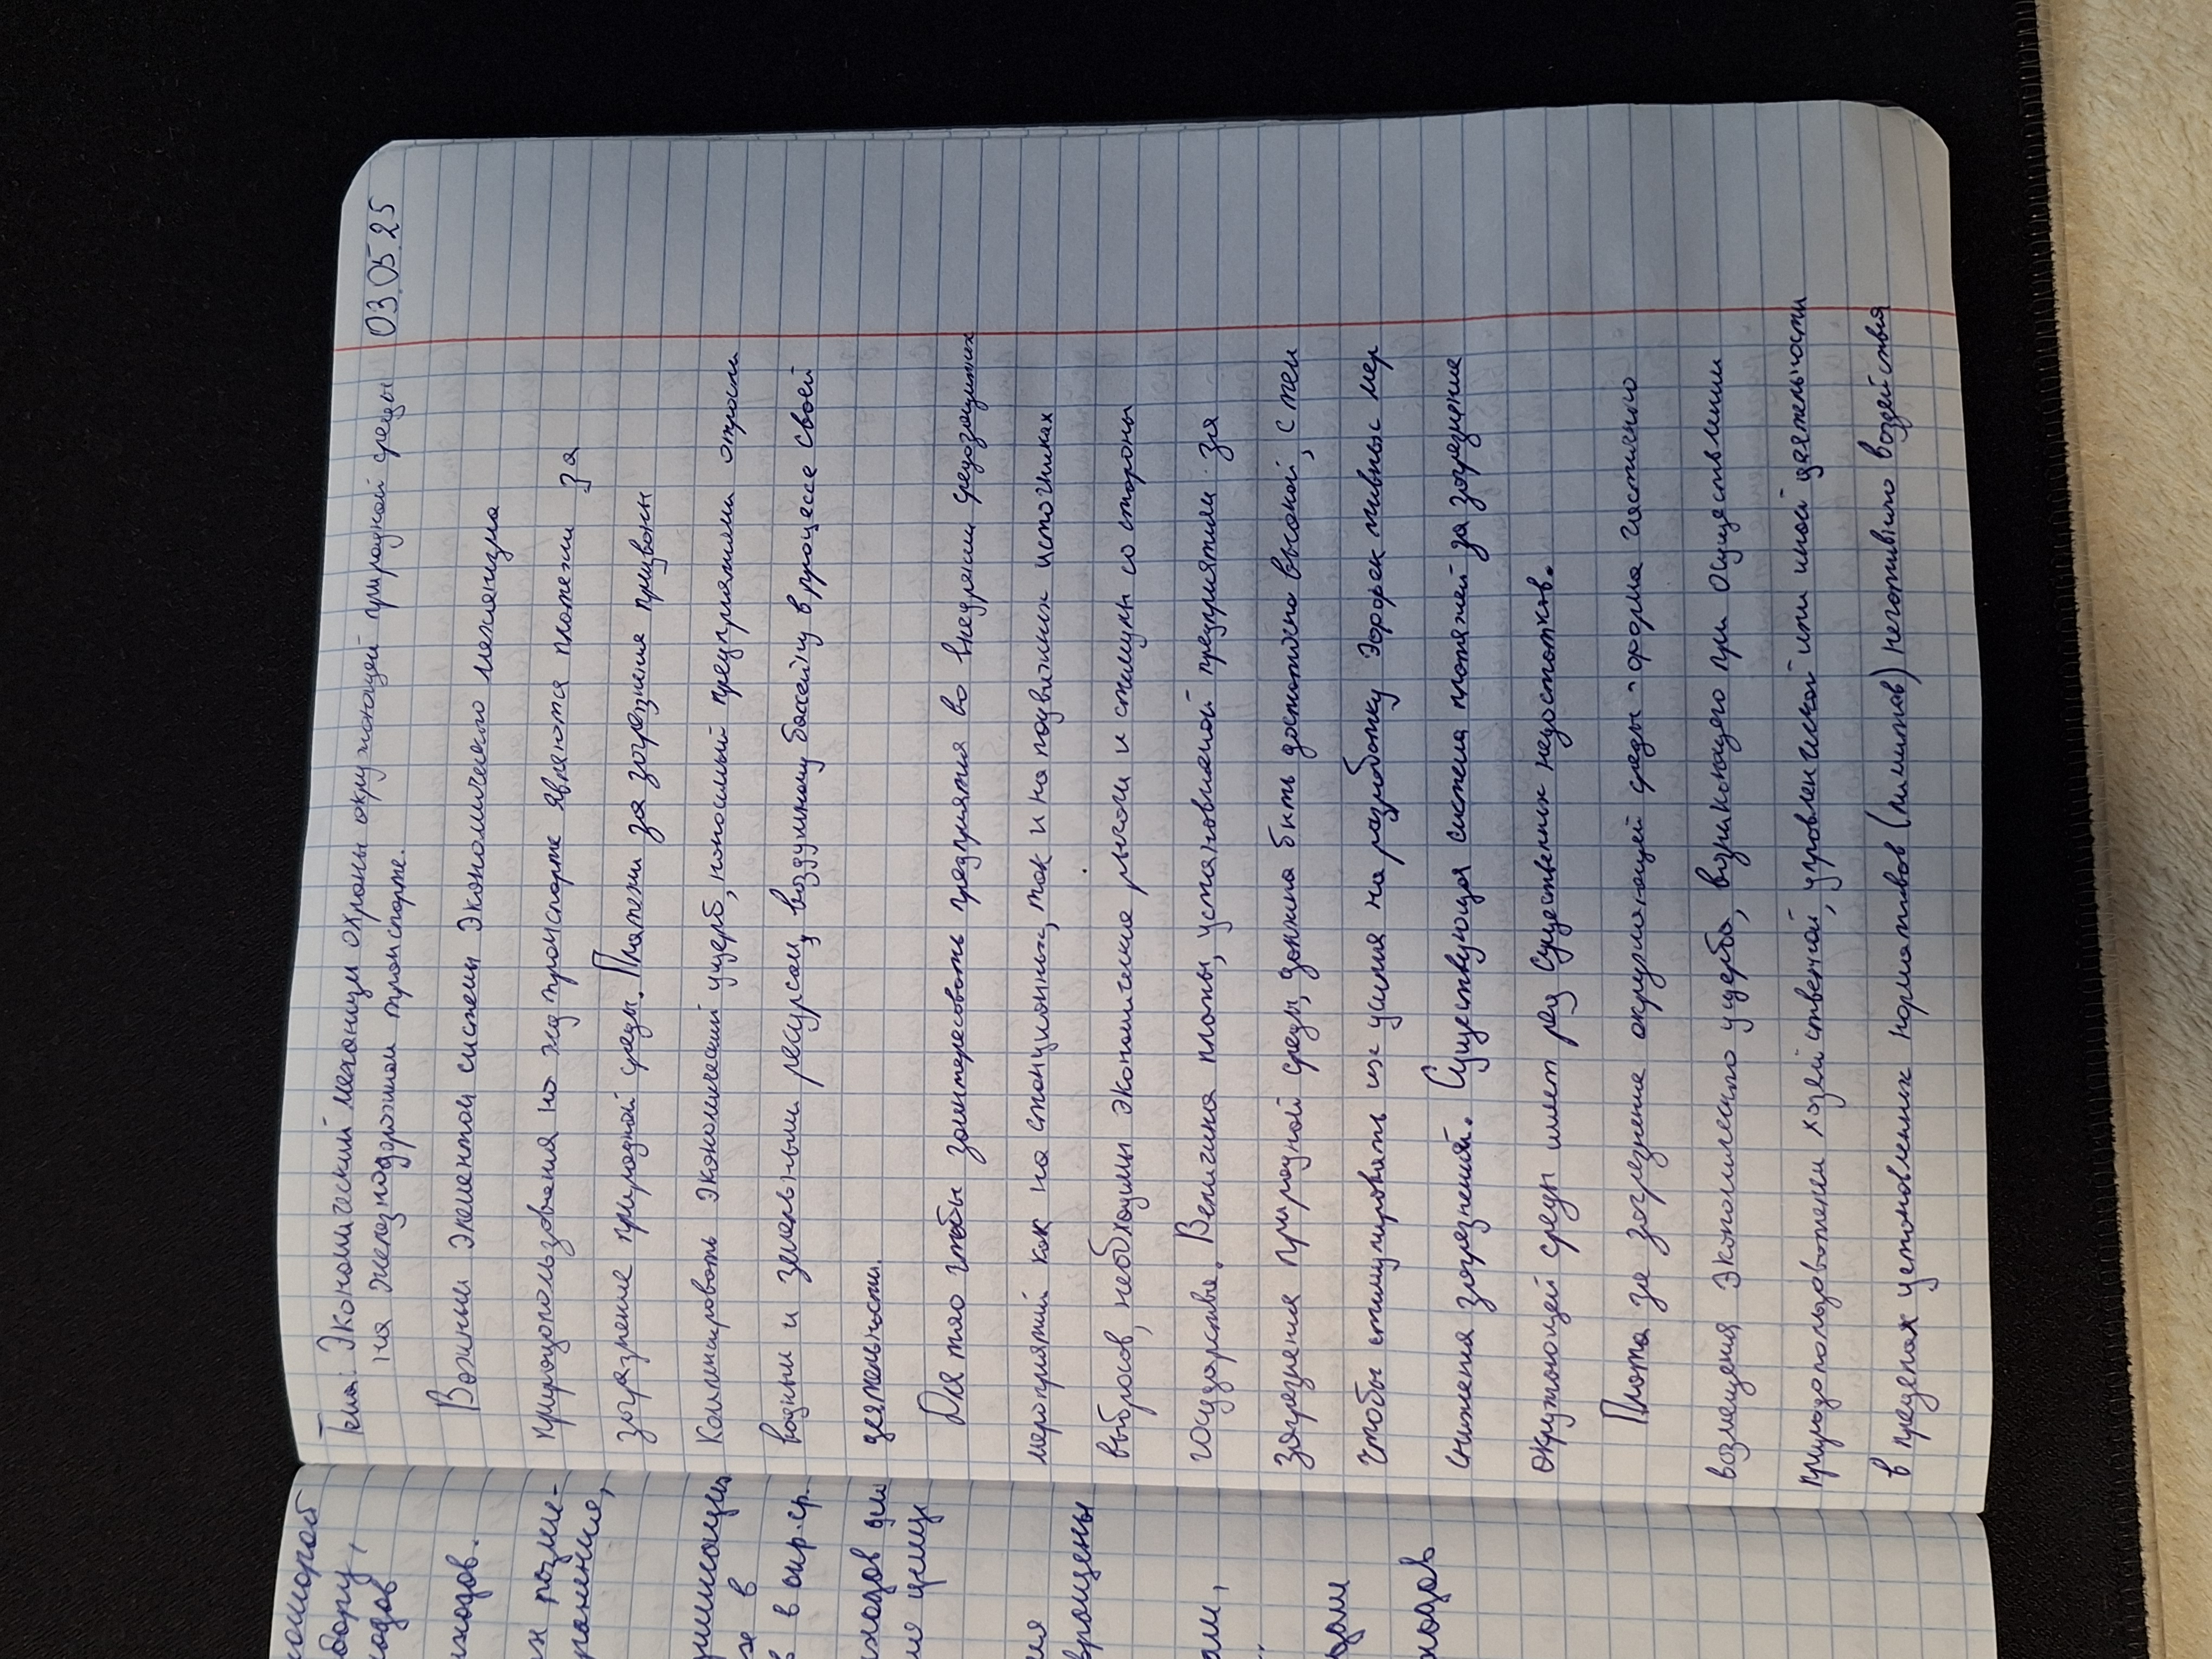 03.05.25
Тема: Экономический механизм охраны окружающей природной среды
на железнодорожном транспорте.
Важным элементом системы экономического механизма
природопользования на жд транспорте являются платежи за
загрязнение природной среды. Платежи за загрязнение призваны
компенсировать экономический ущерб, наносимый предприятиями отрасли
водным и земельным ресурсам, воздушному бассейну в процессе своей
деятельности.
Для того чтобы заинтересовать предприятия во внедрении средозащитных
мероприятий как на стационарных, так и на подвижных источниках
выбросов, необходимы экономические рычаги и стимулы со стороны
государства. Величина платы, устанавливаемой предприятиям за
загрязнения природной среды, должна быть достаточно высокой, с тем
чтобы стимулировать их усилия на разработку эффективных мер
снижения загрязнений. Существующая система платежей за загрязнение
окружающей среды имеет ряд существенных недостатков.
Плата за загрязнение окружающей среды - форма частичного
возмещения экономического ущерба, возникающего при осуществлении
природопользователем хозяйственной, управленческой или иной деятельности
в пределах установленных нормативов (лимитов) негативного воздействия
которой
бору,
ходов
ходов.
х разме-
ранения,
х в
в окр.ср.
ходов для
ия
вращены
ам,
дам
ходов